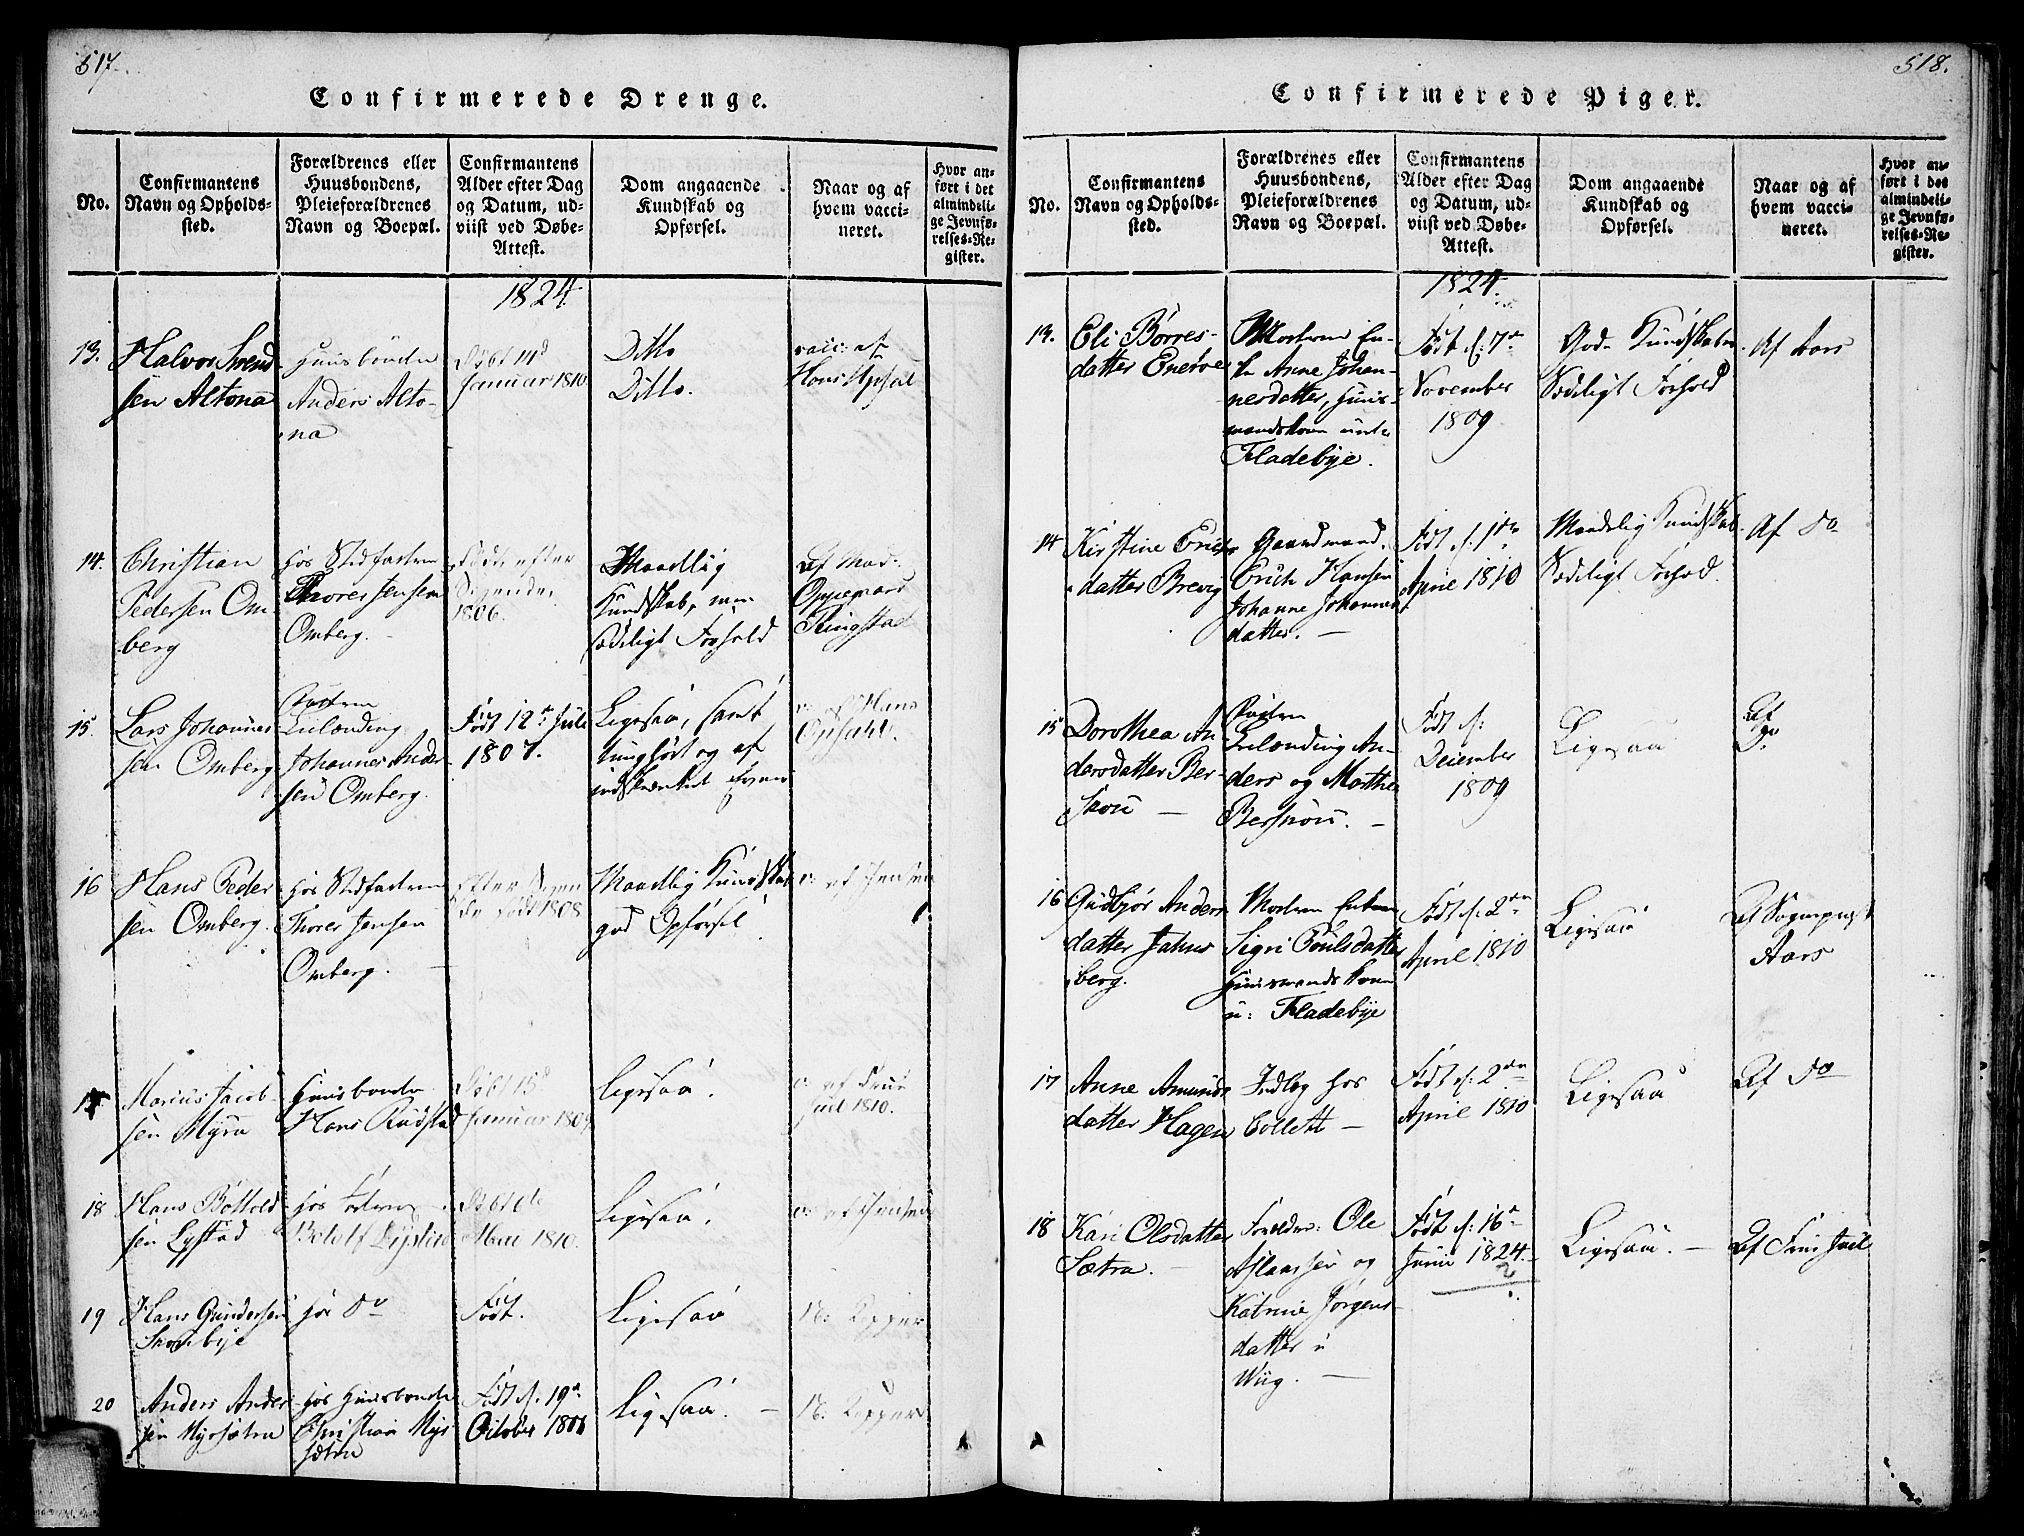 517.
Confirmerede Drenge.
No.
Confirmantens
Navn og Opholds-
sted.
Forældrenes eller
Huusbondens,
Pleieforældrenes
Navn og Boepæl.
Confirmantens
Alder efter Dag
og Datum, ud-
viist ved Døbe-
Attest.
Dom angaaende
Kundskab og
Opførsel.
Naar og af
hvem vacci-
neret.
Hvor an-
ført i det
almindeli-
ge Jevnfø-
relses-Re-
gister.
1824
13.
Halvor Svend-
sen Altona
Huusbonde
Anders Alto-
na
Døbt 14d
Januar 1810
Ditto
Ditto.
vacc: af
Hans Opsal
14.
Christian
Pedersen Om
berg
hos Stedfaderen
Thorer Jensen
Omberg.
Født efter
Sigende
1806.
Maadelig
Kundskab, men
sædeligt Forhold
Af Mad:
Ringstad
15.
Lars Johannes
sen Omberg
Faderen
Leilænding
Johannes Ander
sen Omberg.
Født 12t Juli
1807.
Ligesaa, samt
tunghørt og af
indskrænket Evner
v: af Hans
Opsahl.
16
Hans Peder
sen Omberg.
hos Stedfaderen
Thorer Jensen
Omberg.
Efter Sigen
de født 1808
Maadelig Kundskab
god Opførsel
v: af Jensen
17
Marius Jacob-
sen Myra
Huusbonde
Hans Rudstad
Døbt 15d
Januar 1809
Ligesaa.
v: af Frue
Juel 1810.
18
Hans Bottold
sen Lystad
hos Faderen
Døbt 6te
Mai 1810.
Ligesaa.
v: af Jensen
19
Hans Gundersen
hos do
Født.
Ligesaa
N: Kopper
20
Anders Ander
sen Myrsætra
hos Huusbonde
Christian Myr
sætra
Født d. 19de
October 1808
Ligesaa. —
N: Kopper
518.
Confirmerede Piger.
No.
Confirmantens
Navn og Opholds-
sted.
Forældrenes eller
Huusbondens,
Pleieforældrenes
Navn og Boepæl.
Confirmantens
Alder efter Dag
og Datum, ud-
viist ved Døbe-
Attest.
Dom angaaende
Kundskab og
Opførsel.
Naar og af
hvem vacci-
neret.
Hvor an-
ført i det
almindeli-
ge Jevnfø-
relses-Re-
gister.
1824.
13.
Eli Børres-
datter Enerøe
Moderen En-
ke Anne Johan-
nesdatter, Huus-
mandskone under
Fladebye.
Født d: 7de
November
1809
God Kundskaber
Sædeligt Forhold
Af Aars
14
Kirstine Erichs
datter Brevig
Gaardmand
Erich Hansen
Johanne Johannes
datter. —
Født d. 1de
April 1810
Maadelig Kundskab.
Sædeligt Forhold.
Af do
15
Dorothea An
dersdatter Ber-
skou —
Faderen
Leilænding An-
ders og Marthe
Berskou. —
Født d:
December
1809
Ligesaa
Af
do
16
Gudbjør Anders
datter Jahns
berg.
Moderen Enken
Sigri Poulsdatter
Huusmandskone
u: Fladebye
Født d. 2den
April 1810
Ligesaa
Af Sogneprest
Aars
17
Anne Amunds
datter Hagen
Indlæg hos
Collett —
Født d: 2den
April 1810
Ligesaa
Af do
18
Kari Olsdatter
Sætra. —
Forældre: Ole
Aslaksen og
Katrine Jørgens-
datter i
Wiig. —
Født d: 16de
Junii 1824.
Ligesaa. —
Af Frue Juel